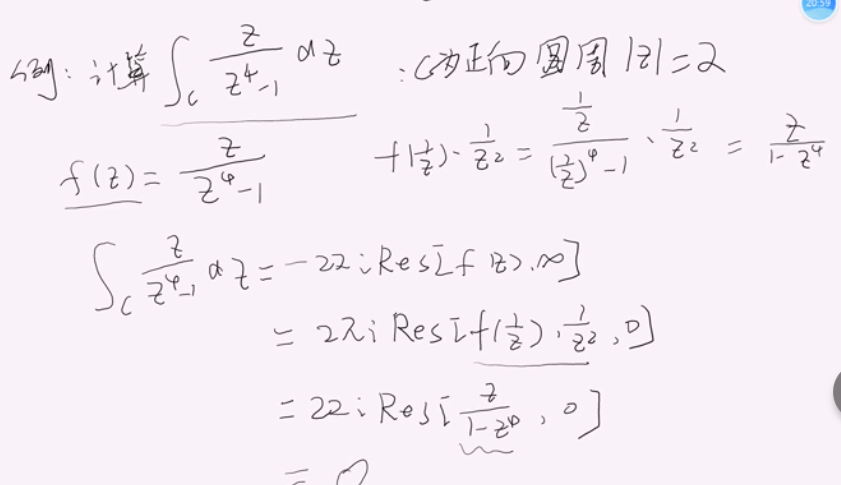 20:59
例：计算 ∫_C z/(z⁴-1) dz ：C为正向圆周 |z|=2
f(z) = z/(z⁴-1) f(1/z)·1/z² = (1/z)/((1/z)⁴-1) · 1/z² = z/(1-z⁴)
∫_C z/(z⁴-1) dz = -2πi Res[f(z), ∞]
= 2πi Res[f(1/z)·1/z², 0]
= 2πi Res[z/(1-z⁴), 0]
= 0